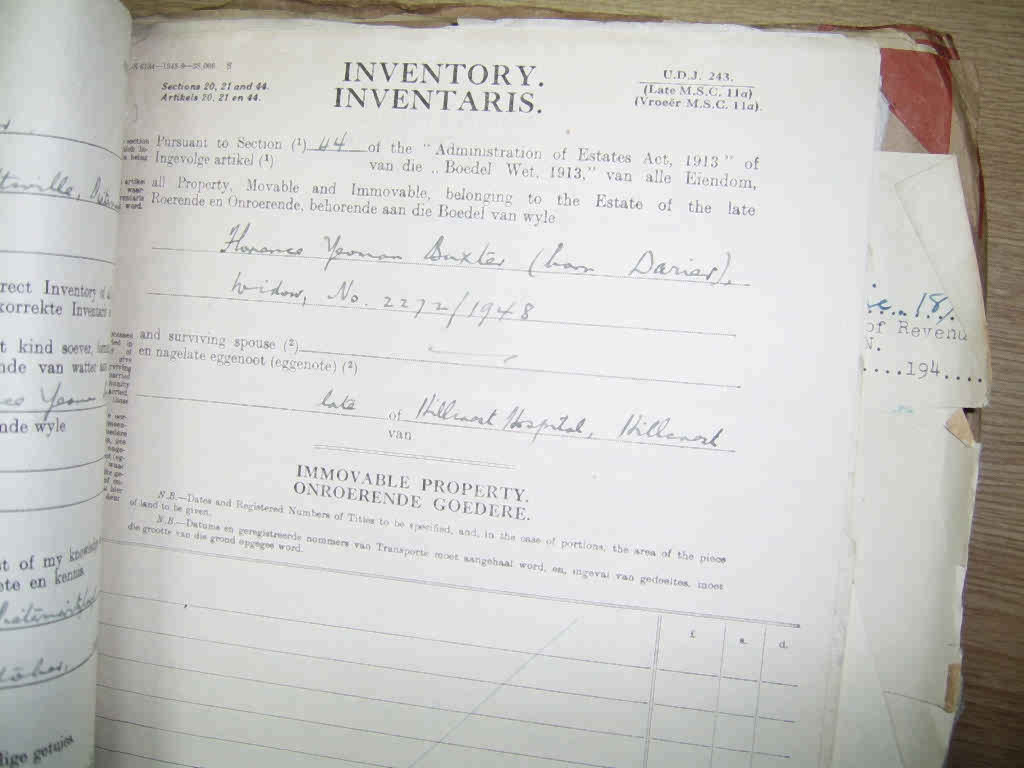 INVENTORY.
INVENTARIS.
Sections 20, 21 and 44.
Artikels 20, 21 en 44.
U.D.J. 243.
(Late M.S.C. 11a)
(Vroeër M.S.C. 11a).
Pursuant to Section (¹) 44 of the "Administration of Estates Act, 1913" of
Ingevolge artikel (¹) van die „Boedel Wet, 1913," van alle Eiendom,
all Property, Movable and Immovable, belonging to the Estate of the late
Roerende en Onroerende, behorende aan die Boedel van wyle
Florence Yeoman Baxter (born Darier),
Widow, No. 2272/1948
and surviving spouse (²)
en nagelate eggenoot (eggenote) (²)
late of Hillcrest Hospital, Hillcrest
van
IMMOVABLE PROPERTY.
ONROERENDE GOEDERE.
N.B.—Dates and Registered Numbers of Titles to be specified, and, in the case of portions, the area of the piece
of land to be given.
N.B.—Datums en geregistreerde nommers van Transporte moet aangehaal word, en, ingeval van gedeeltes, moet
die grootte van die grond opgegee word.
£ s. d.
rect Inventory of
korrekte Inventaris
t kind soever,
nde van watter
Yeoman
nde wyle
st of my knowledge
ete en kennis
lige getuies
of Revenu
N.
....194....